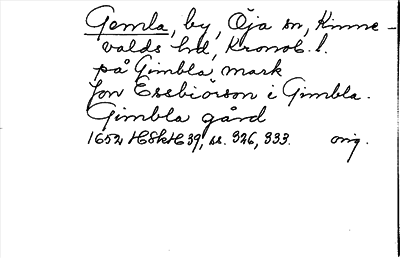 Gemla, by, Öja sn, Kinne-
valds hd, Kronob. l.
på Gimbla mark
Jon Essbiörson i Gimbla.
Gimbla gård
1652 HSkH 39, ss. 326, 333. orig.